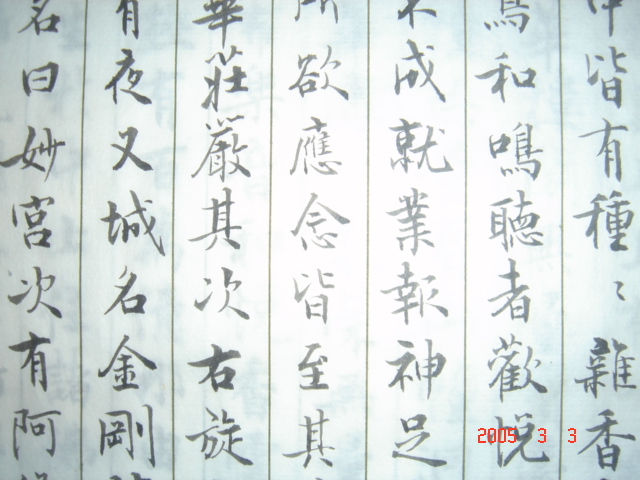 中皆有種〻雜香
鳥和鳴聽者歡悅
不成就業報神足
所欲應念皆至其
華莊嚴其次右旋
有夜叉城名金剛
名曰妙宮次有阿
2005 3 3